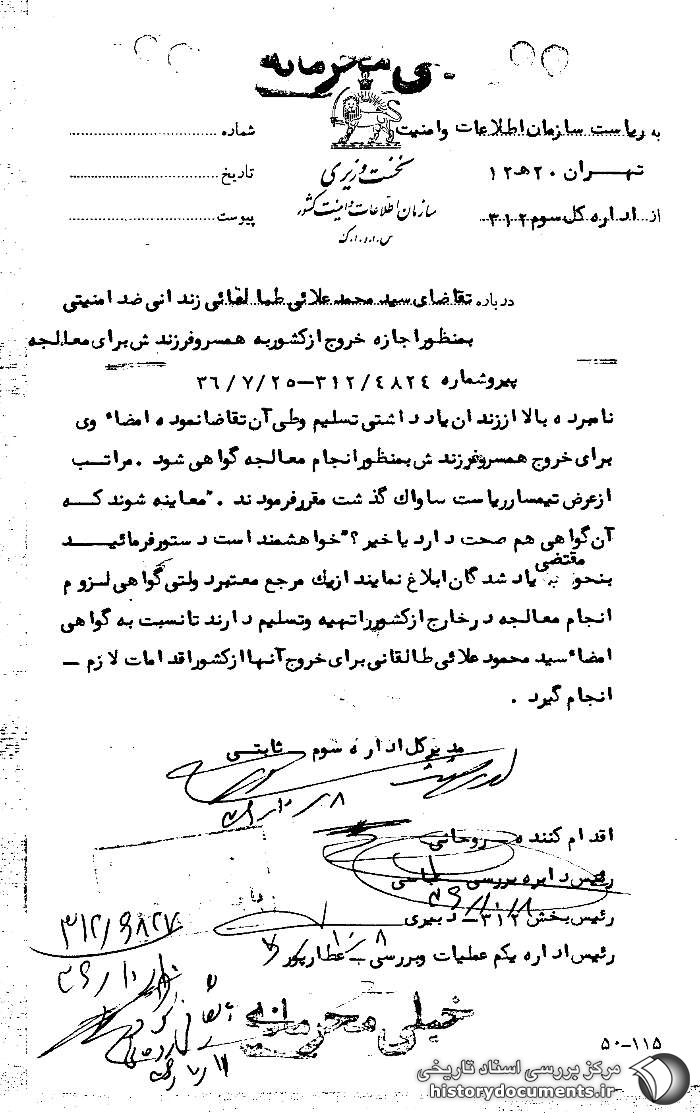 خیلی محرمانه
به ریاست سازمان اطلاعات وامنیت
تهران ۲۰هـ۱۲
از اداره کل سوم ۳۱۲
نخست وزیری
سازمان اطلاعات و امنیت کشور
س.ا.و.ا.ک
شماره
تاریخ
پیوست
درباره تقاضای سید محمد علائی طالقانی زندانی ضد امنیتی
بمنظور اجازه خروج ازکشور به همسروفرزندش برای معالجه
پیروشماره ۳۱۲/۴۸۲۴-۳۶/۷/۲۵
نامبرده بالا اززندان یادداشتی تسلیم وطی آن تقاضانموده امضاء وی
برای خروج همسروفرزندش بمنظورانجام معالجه گواهی شود . مراتب
ازعرض تیمسارریاست ساواک گذشت مقررفرمودند . "معاینه شوند که
آن گواهی هم صحت دارد یاخیر ؟" خواهشمند است دستورفرمائید
بنحو مقتضی به یادشدگان ابلاغ نمایند ازیک مرجع معتبرد ولتی گواهی لزوم
انجام معالجه درخارج ازکشورراتهیه وتسلیم دارند تانسبت به گواهی
امضاء سید محمود علائی طالقانی برای خروج آنها ازکشوراقدامات لازم –
انجام گیرد .
مدیرکل اداره سوم ثابتی
اقدام کننده – روحانی
رئیس دایره بررسی
رئیس بخش ۳۱۲ – دبیری
رئیس اداره یکم عملیات وبررسی – عطارپور
۳۱۲/۶۸۲۷
خیلی محرمانه
۵۰-۱۱۵
مرکز بررسی اسناد تاریخی
historydocuments.ir